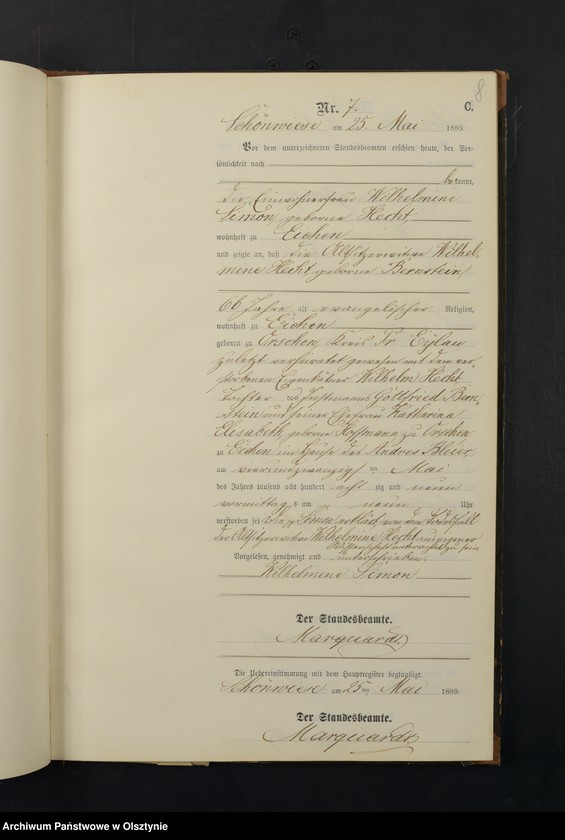 8
Nr. 7. C.
Schönwiese am 25. Mai 1889.
Vor dem unterzeichneten Standesbeamten erschien heute, der Per-
sönlichkeit nach
bekannt,
die Einwohnerfrau Wilhelmine
Simon, geborne Hecht
wohnhaft zu Eichen
und zeigte an, daß die Altsitzerwitwe Wilhel-
mine Hecht geborne Bernstein
66 Jahre alt evangelischer Religion,
wohnhaft zu Eichen
geboren zu Orschen, Kreis Pr. Eylau
zuletzt verheiratet gewesen mit dem ver-
storbenen Eigentümer Wilhelm Hecht
Tochter des Gottfried Bern-
stein und seiner Ehefrau Katharina
Elisabeth, geborne Hoffmann zu Orschen
zu Eichen im Hause des Andres
am vierundzwanzigsten Mai
des Jahres tausend acht hundert achtzig und neun
vormittags um neun Uhr
verstorben sei Simon erklärt, von dem Todesfall
der Altsitzerwitwe Wilhelmine Hecht aus eigener
Wissenschaft unterrichtet zu sein
Vorgelesen, genehmigt und unterschrieben.
Wilhelmine Simon
Der Standesbeamte.
Marquardt.
Die Uebereinstimmung mit dem Hauptregister beglaubigt.
Schönwiese am 25ten Mai 1889.
Der Standesbeamte.
Marquardt
Archiwum Państwowe w Olsztynie